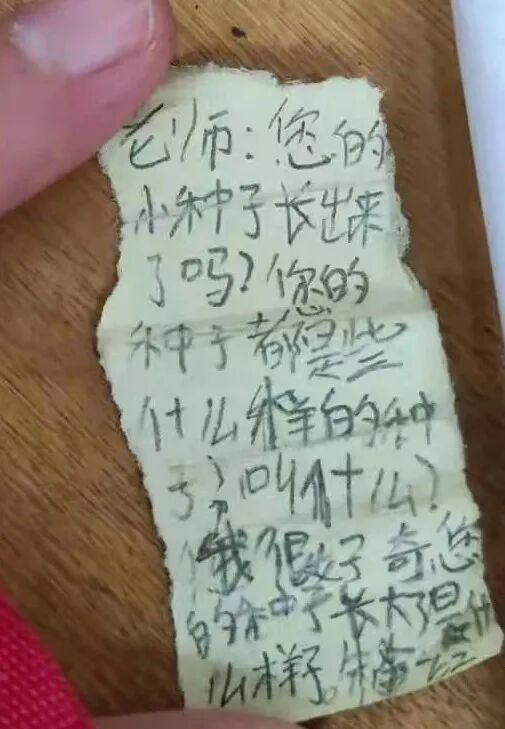 老师:您的
小种子长出来
了吗?您的
种子都是些
什么样的种
子?叫什么?
我很好奇您
的种子长大了是什
么样子。朱